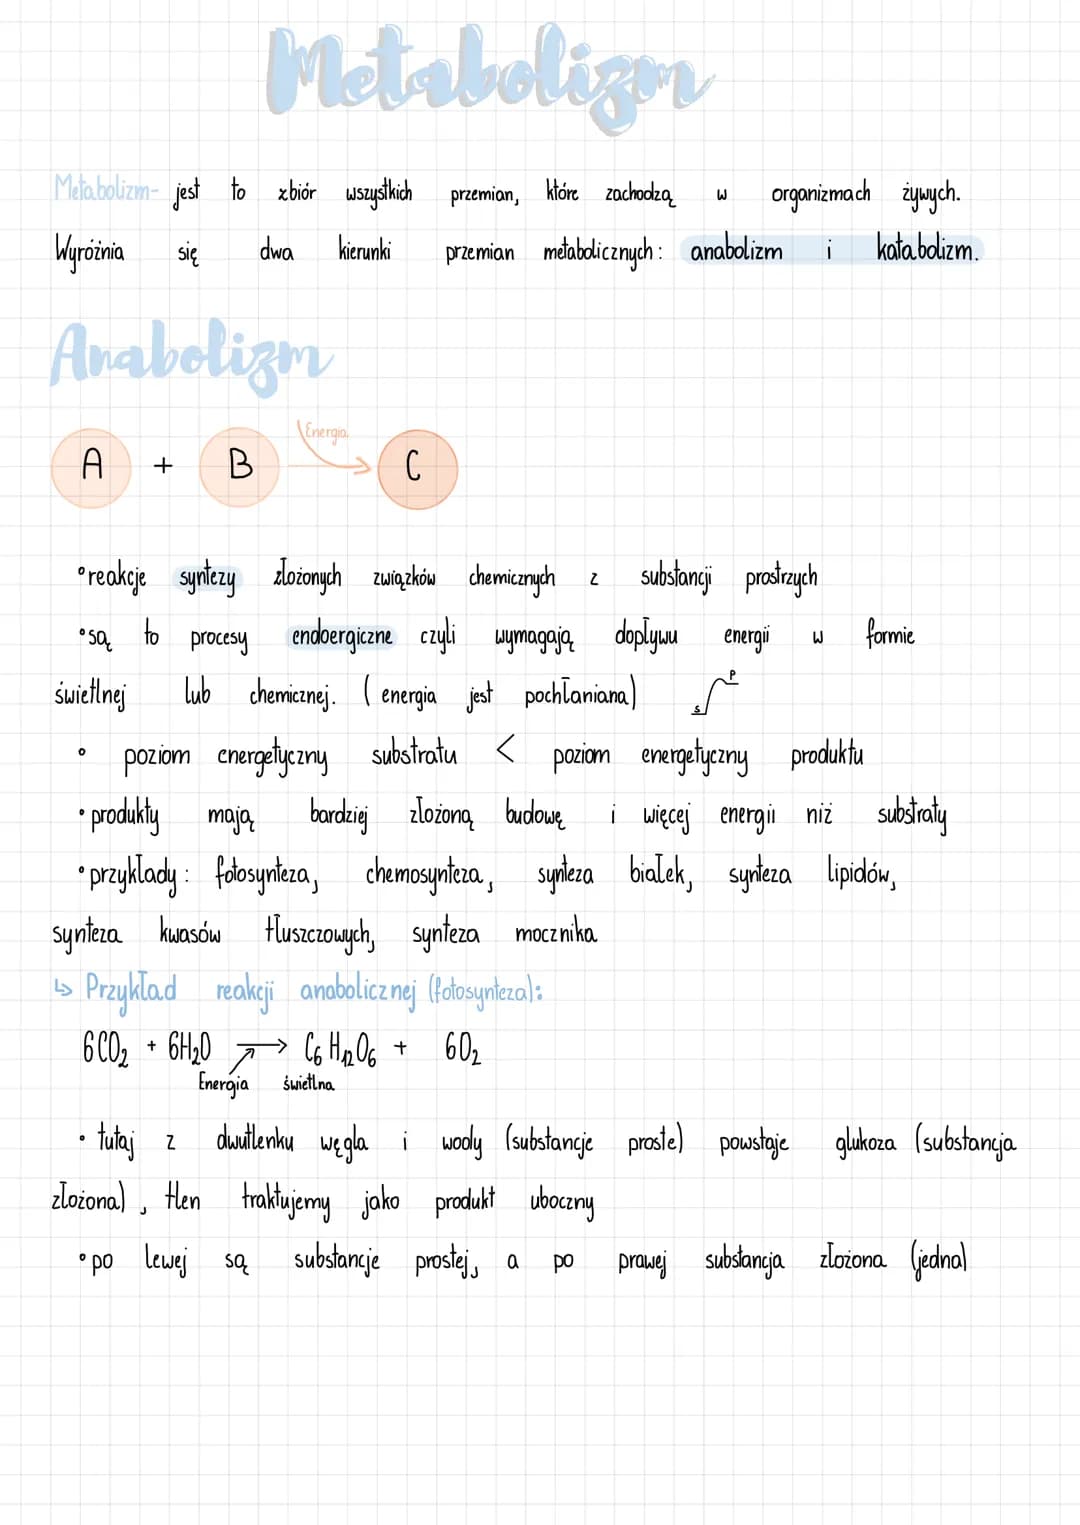 Metabolizm
Metabolizm- jest to zbiór wszystkich przemian, które zachodzą w organizmach żywych.
Wyróżnia się dwa kierunki przemian metabolicznych: anabolizm i katabolizm.
Anabolizm
Energia
A + B → C
°reakcje syntezy złożonych związków chemicznych z substancji prostrzych
°są to procesy endoergiczne czyli wymagają dopływu energii w formie
świetlnej lub chemicznej. (energia jest pochłaniana) S P
° poziom energetyczny substratu < poziom energetyczny produktu
° produkty mają bardziej złożoną budowę i więcej energii niż substraty
°przykłady: fotosynteza, chemosynteza, synteza białek, synteza lipidów,
synteza kwasów tłuszczowych, synteza mocznika
↳ Przykład reakcji anabolicznej (fotosynteza):
6CO₂ + 6H₂O → C₆H₁₂O₆ + 6O₂
Energia świetlna
• tutaj z dwutlenku węgla i wody (substancje proste) powstaje glukoza (substancja
złożona), tlen traktujemy jako produkt uboczny
°po lewej są substancje prostej, a po prawej substancja złożona (jedna)